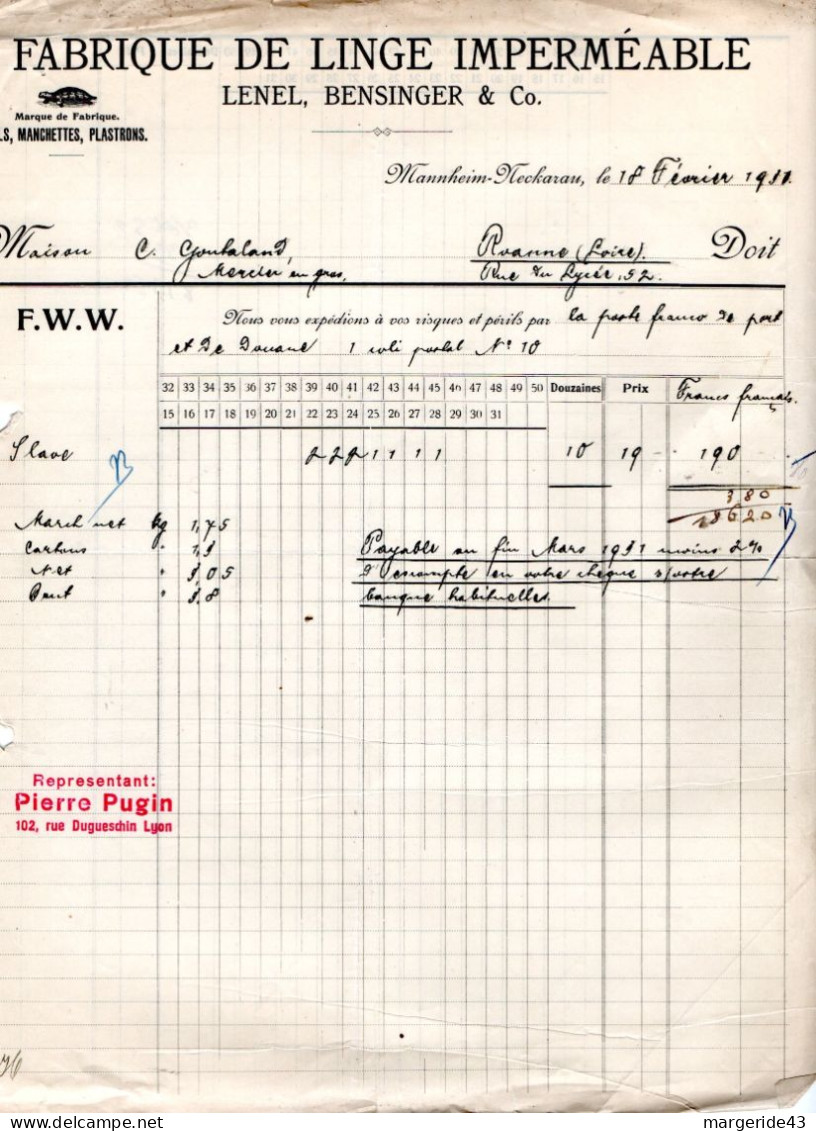 FABRIQUE DE LINGE IMPERMÉABLE
LENEL, BENSINGER & Co.
Marque de Fabrique.
LS, MANCHETTES, PLASTRONS.
Mannheim-Neckarau, le 18 Février 1931.
Maison C. Goutaland, Roanne (Loire). Doit
Mercier en gros, Rue du Lycée, 52.
F.W.W. Nous vous expédions à vos risques et périls par la poste franco de port
et de Douane 1 coli postal N° 10
32 33 34 35 36 37 38 39 40 41 42 43 44 45 46 47 48 49 50 Douzaines Prix Francs français.
15 16 17 18 19 20 21 22 23 24 25 26 27 28 29 30 31
Slave 2 2 2 1 1 1 1 10 19 - 190
3 80
186 20
March net kg 1,75
Cartons " 1,3 Payable au fin Mars 1931 moins 2%
Net " 3,05 d'escompte en votre chèque s/votre
Brut " 3,8 banque habituelles.
Representant:
Pierre Pugin
102, rue Dugueschin Lyon
www.delcampe.net
margeride43